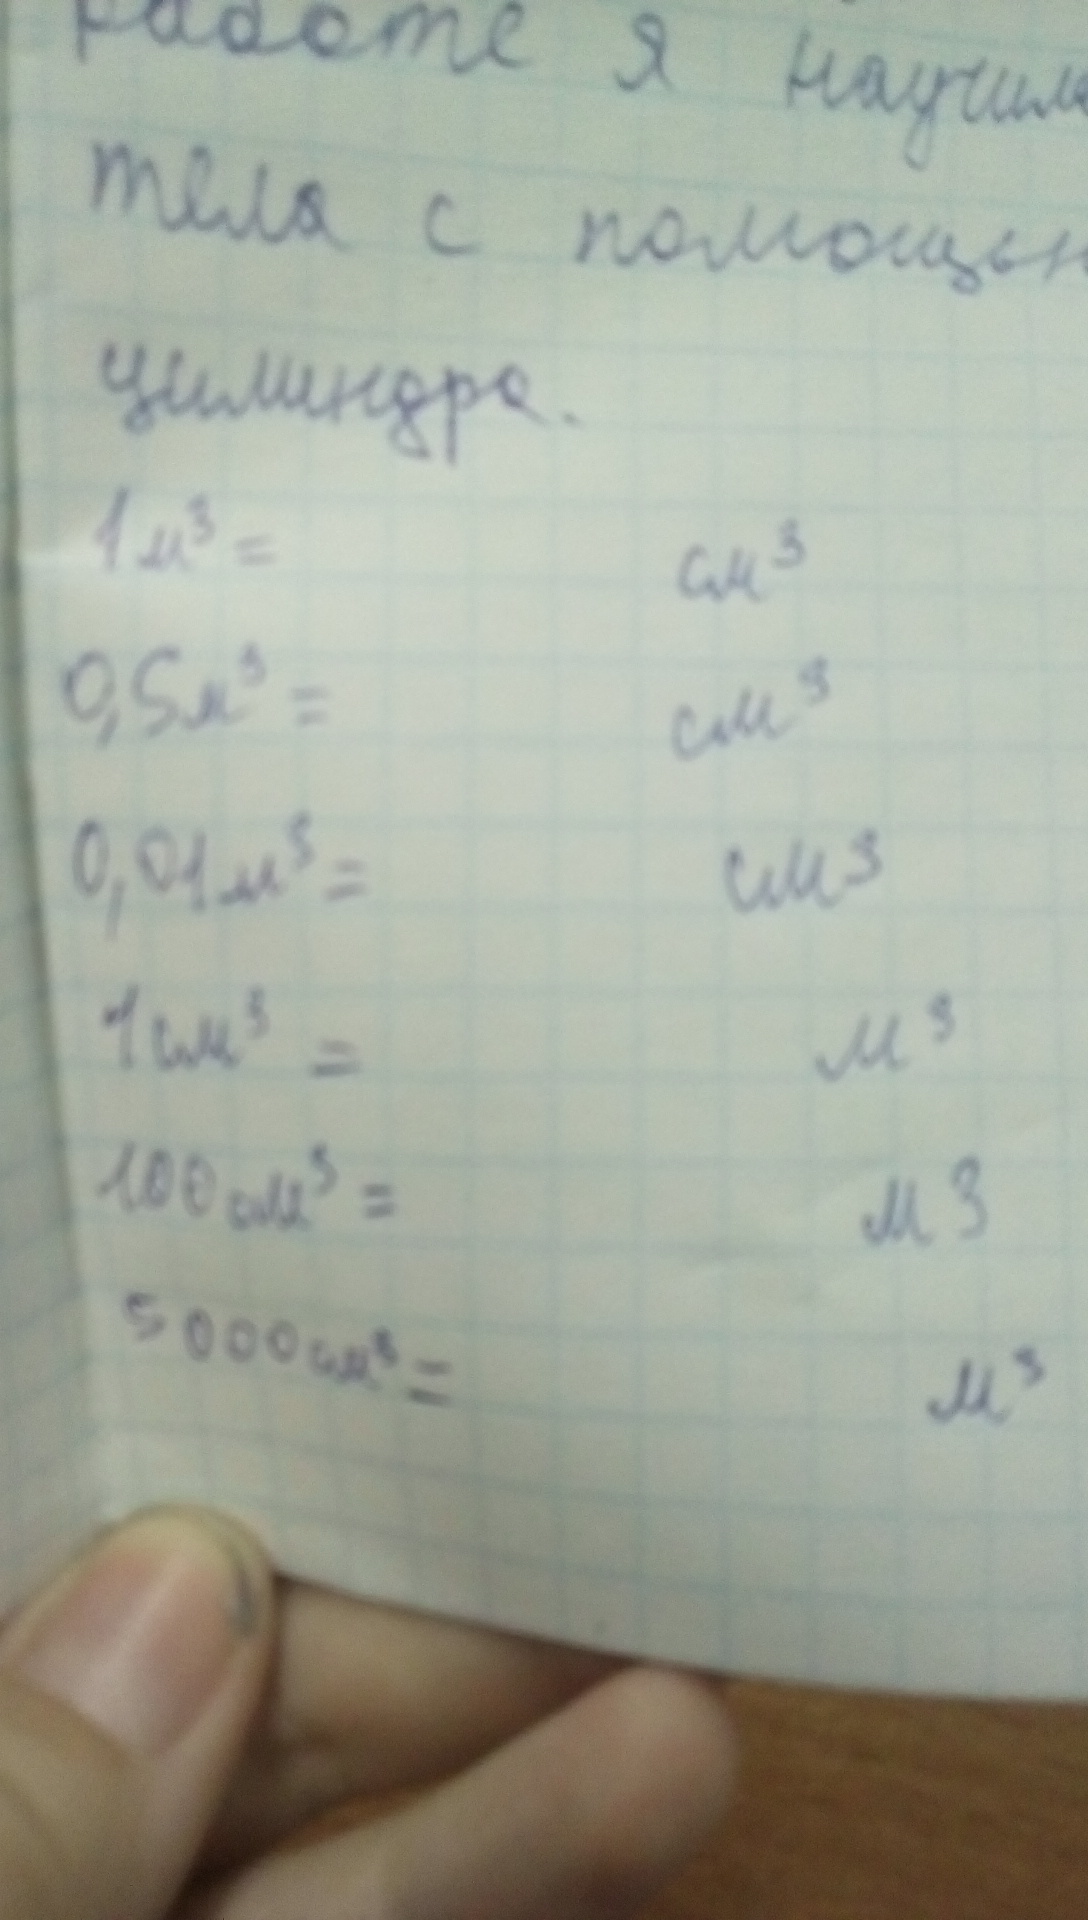 работе я научил
тела с помощью
цилиндра.
1м³ = см³
0,5м³ = см³
0,01м³ = см³
1см³ = м³
100см³ = м3
5000см³ = м³